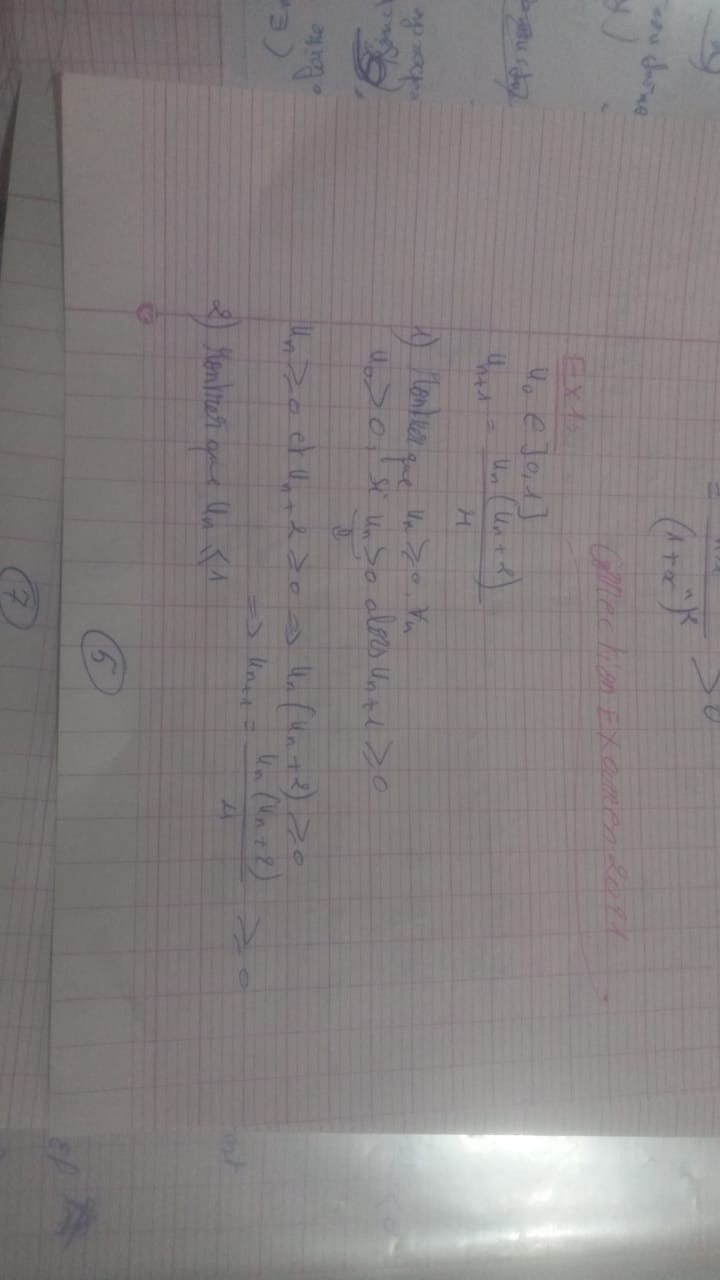 = / (1+x^n)^2 > 0
Correction Examen 2021
Ex1:
u_0 ∈ ]0,1]
u_{n+1} = u_n (u_n + 2) / 4
1) Montrer que u_n ≥ 0, ∀n
u_0 > 0, si u_n > 0 alors u_{n+1} ≥ 0
u_n ≥ 0 et u_n + 2 ≥ 0 => u_n (u_n + 2) ≥ 0
=> u_{n+1} = u_n (u_n + 2) / 4 ≥ 0
2) Montrer que u_n ≤ 1
5
7